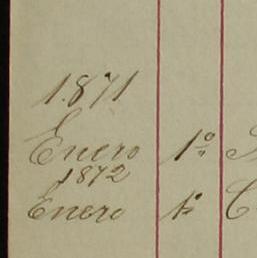 1871
Enero 1º
1872
Enero 1º